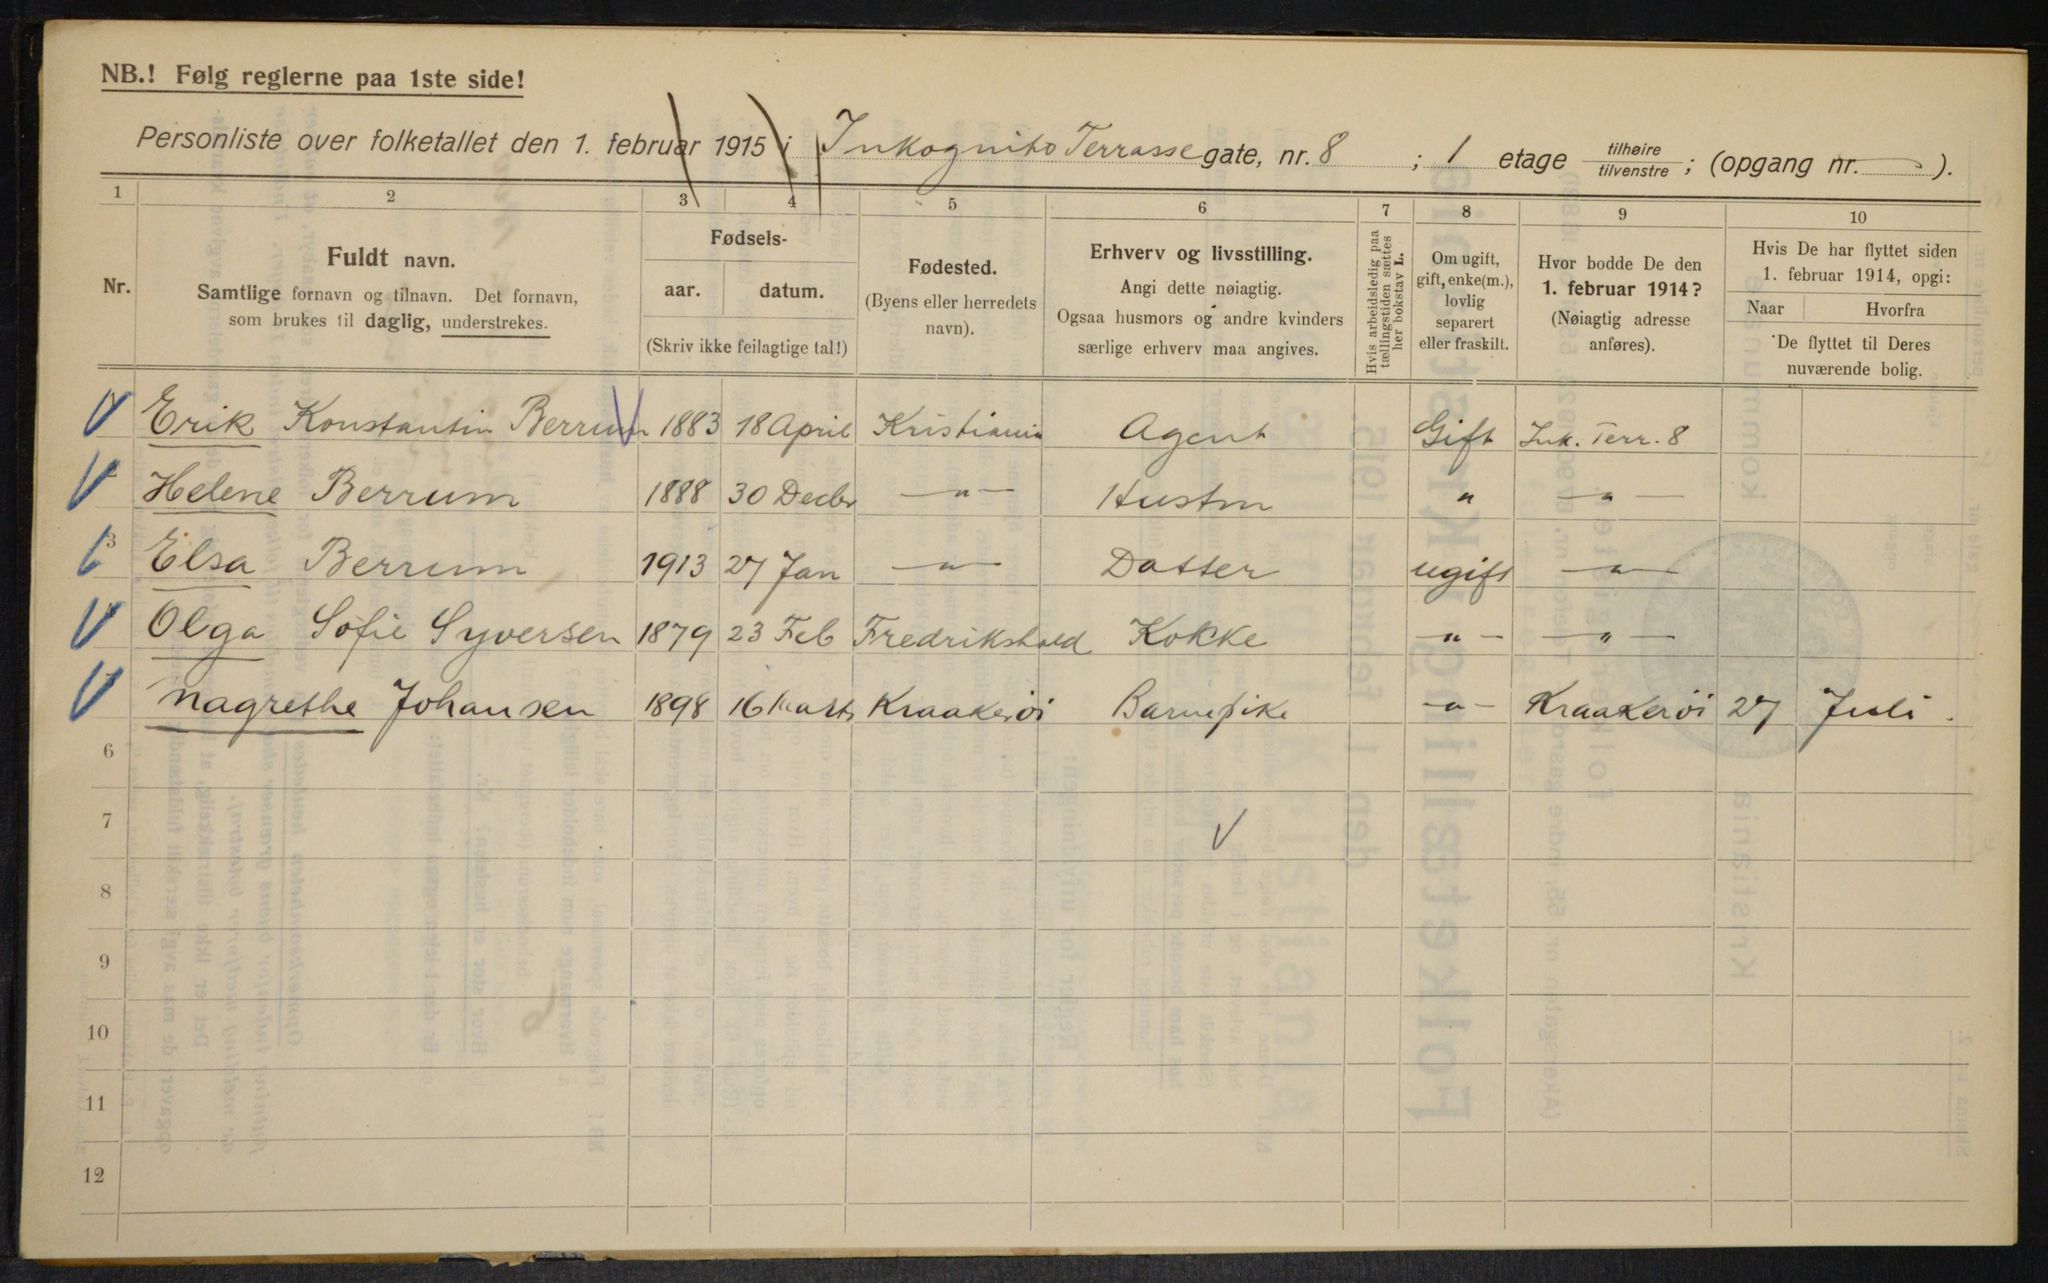 NB.! Følg reglerne paa 1ste side!
Personliste over folketallet den 1. februar 1915 i Inkognito Terrasse gate, nr. 8 ; 1 etage tilhøire tilvenstre ; (opgang nr. — ).
1 2 3 4 5 6 7 8 9 10
Nr.
Fuldt navn.
Samtlige fornavn og tilnavn. Det fornavn,
som brukes til daglig, understrekes.
Fødsels-
aar. datum.
(Skriv ikke feilagtige tal!)
Fødested.
(Byens eller herredets
navn).
Erhverv og livsstilling.
Angi dette nøiagtig.
Ogsaa husmors og andre kvinders
særlige erhverv maa angives.
Hvis arbeidsledig paa
tællingstiden sættes
her bokstav L.
Om ugift,
gift, enke(m.),
lovlig
separert
eller fraskilt.
Hvor bodde De den
1. februar 1914?
(Nøiagtig adresse
anføres).
Hvis De har flyttet siden
1. februar 1914, opgi:
Naar Hvorfra
De flyttet til Deres
nuværende bolig.
Erik Konstantin Berrum 1883 18 April Kristiania Agent Gift Ink. Terr. 8
2 Helene Berrum 1888 30 Decbr —"— Hustru " —"—
3 Elsa Berrum 1913 27 Jan —"— Datter ugift —"—
Olga Sofie Syversen 1879 23 Feb Fredrikshald Kokke —"— —"—
Magrethe Johansen 1898 16 Marts Kraakerøi Barnepike —"— Kraakerøi 27 Juli.
6
7
8
9
10
11
12